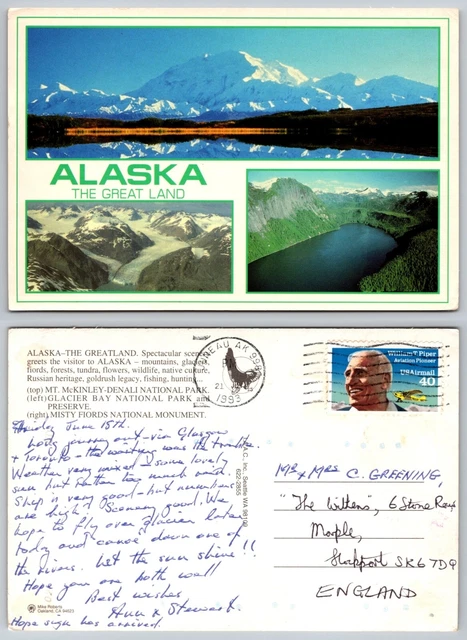 ALASKA
THE GREAT LAND
ALASKA–THE GREATLAND. Spectacular scenery
greets the visitor to ALASKA – mountains, glaciers,
fiords, forests, tundra, flowers, wildlife, native culture,
Russian heritage, goldrush legacy, fishing, hunting...
(top) MT. McKINLEY-DENALI NATIONAL PARK.
(left) GLACIER BAY NATIONAL PARK and
PRESERVE.
(right) MISTY FIORDS NATIONAL MONUMENT.
June 18th.
Long journey out - via Glasgow
& Toronto - the waiting was the trouble.
Weather very mixed - some lovely
sun but rather too much rain.
Ship is very good - but numbers
are high! Scenery good. We
hope to fly over glacier later
today and canoe down one of
the rivers. Let the sun shine!!
Hope you are both well
Best wishes
Ann & Stewart.
Hope sign has arrived.
Mike Roberts
Oakland, CA 94623
Inc. Seattle WA 98109
622-2855
JUNEAU AK 998
21 JUN
1993
William T. Piper
Aviation Pioneer
USAirmail
40
Mr & Mrs C. GREENING,
"The Withens", 6 Stone Row
Marple,
Stockport SK6 7DQ
ENGLAND